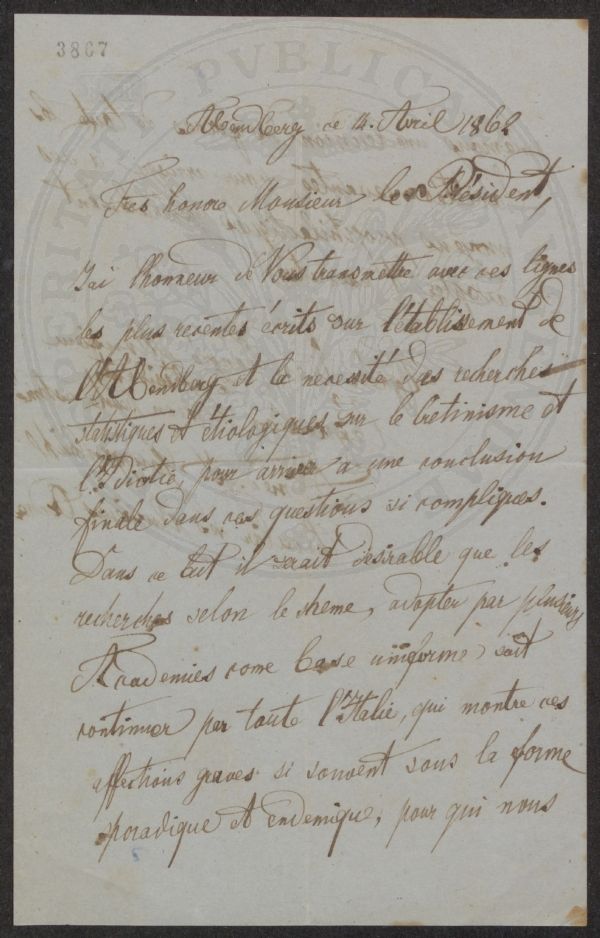 3867
Abendberg ce 14. Avril 1862
Tres honore Monsieur le Président,
J'ai l'honneur de Vous transmettre avec ces lignes
les plus recentes écrits sur l'établissement de
l'Abendberg et le necessité das recherches
statistiques et étiologiques sur le Cretinisme et
l'Idiotie, pour arriver a une conclusion
finale dans ces questions si compliques.
Dans ce but il serait desirable que les
recherches selon le sheme, adopter par plusieurs
Academies come base uniforme, soit
continuer per toute l'Italie, qui montre ces
affections graves si souvent sous la forme
sporadique et endemique, pour qui nous